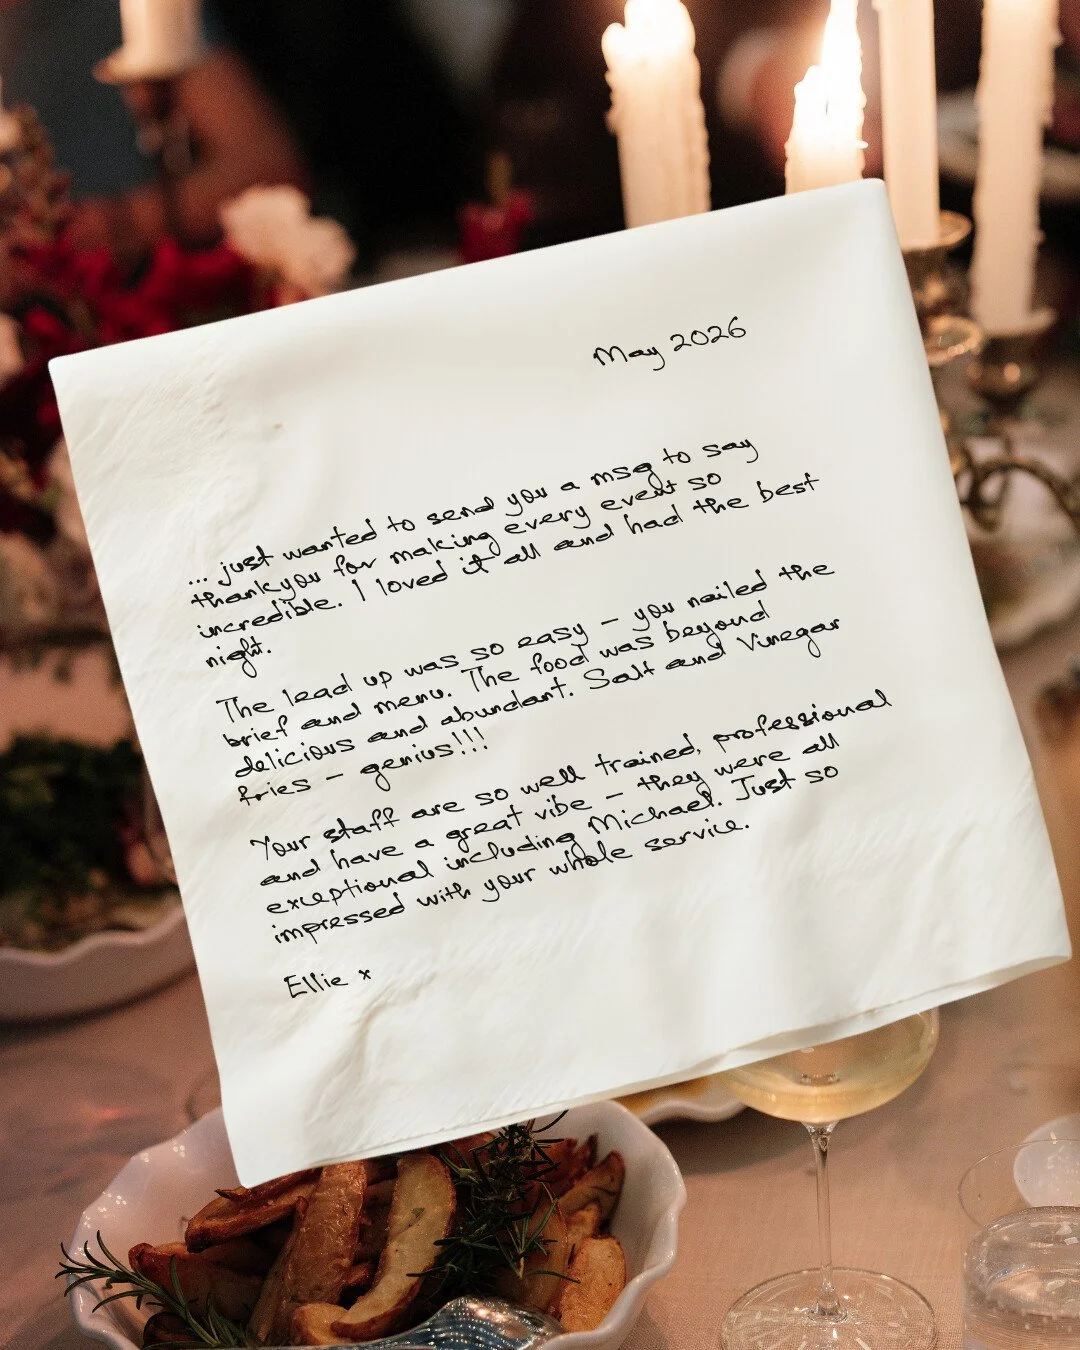 May 2026
... just wanted to send you a msg to say
thankyou for making every event so
incredible. I loved it all and had the best
night.
The lead up was so easy – you nailed the
brief and menu. The food was beyond
delicious and abundant. Salt and Vinegar
fries – genius!!!
Your staff are so well trained, professional
and have a great vibe – they were all
exceptional including Michael. Just so
impressed with your whole service.
Ellie x